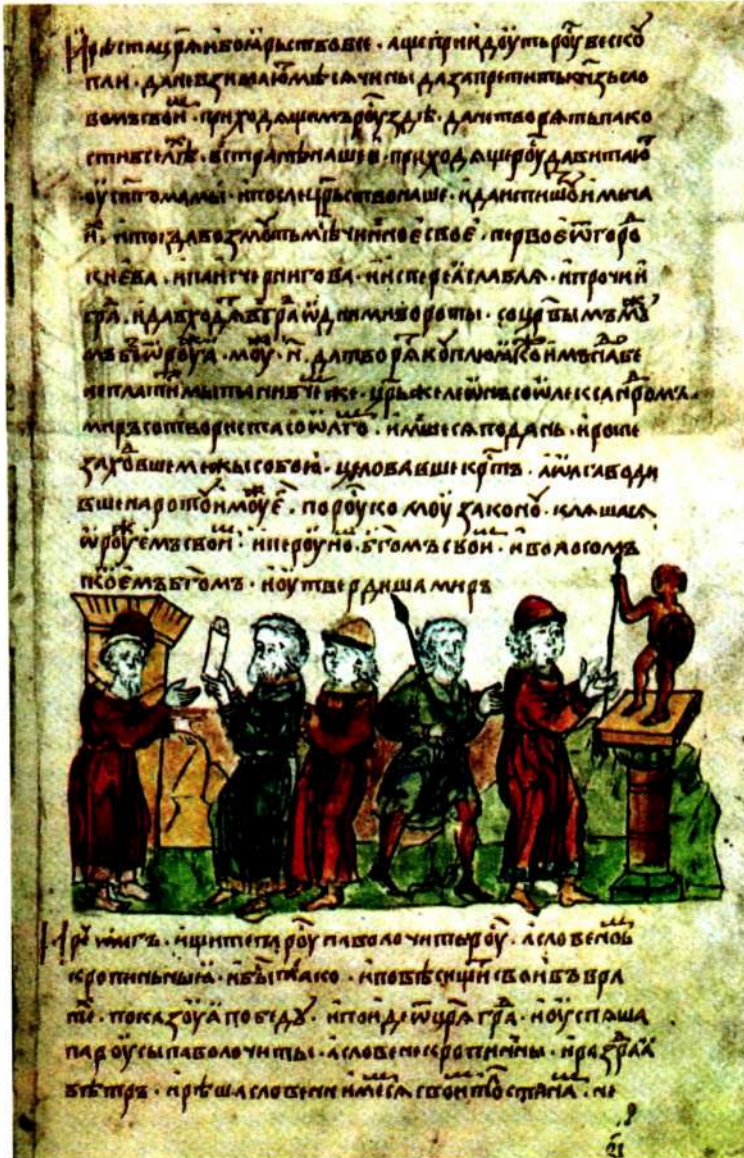 И рѣста цр҃ѧ и боѧрьство все . аще приидоуть роу бес кѹ
пли . да не взимаю мѣсѧчины да запретить кнзь сло
вомъ свои . приходѧщимъ роу здѣ . да не творѧть пако
сти в селѣ . в странѣ нашеи . приходѧще роу да витаю
оу ст҃го мамы . и послеть црьство наше . и да испишю имена
и . и тогда возмоуть мѣсечинное свое . первое ѿ горо
киева . и паки чернигова . и ис переаславлѧ . и прочии
гра . и да входѧ в гра ѡдинеми вороты . со црвымъ моу
мъ без ѡроуа . моу . н҃ . да творѧ коуплю ѧко имъ
не платѧчи мыта ни в чеже . црь же леѡнъ со ѡлексаномъ
миръ сотвориста со ѡлго . имшесѧ по дань . и роте
заховше межы собою . целовавше крть . а ѡлга води
вше на ротоу и моуе . по роускомоу законоу . клѧшасѧ
ѡроуемъ свои . и пероуно . бгомъ свои . и волосомъ
скоемъ бгомъ . и оутвердиша миръ
И ре ѡлегъ . ищите роу паволочиты роу . а словено
кропиньныѧ . и бы тако . и повѣси щи свои въ вра
те . показоуа победоу . и поиде ѿ црѧ гра . и оуспѧша
па роусы паволочиты . а словене кропинны . и разра а
вѣтръ . и рѣша словени имесѧ свои . не